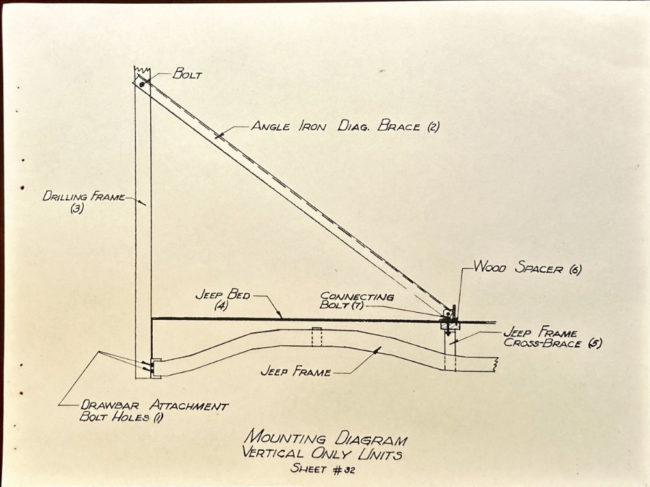 Bolt
Angle Iron Diag. Brace (2)
Drilling Frame
(3)
Wood Spacer (6)
Jeep Bed
(4)
Connecting
Bolt (7)
Jeep Frame
Cross-Brace (5)
Jeep Frame
Drawbar Attachment
Bolt Holes (1)
Mounting Diagram
Vertical Only Units
Sheet #32